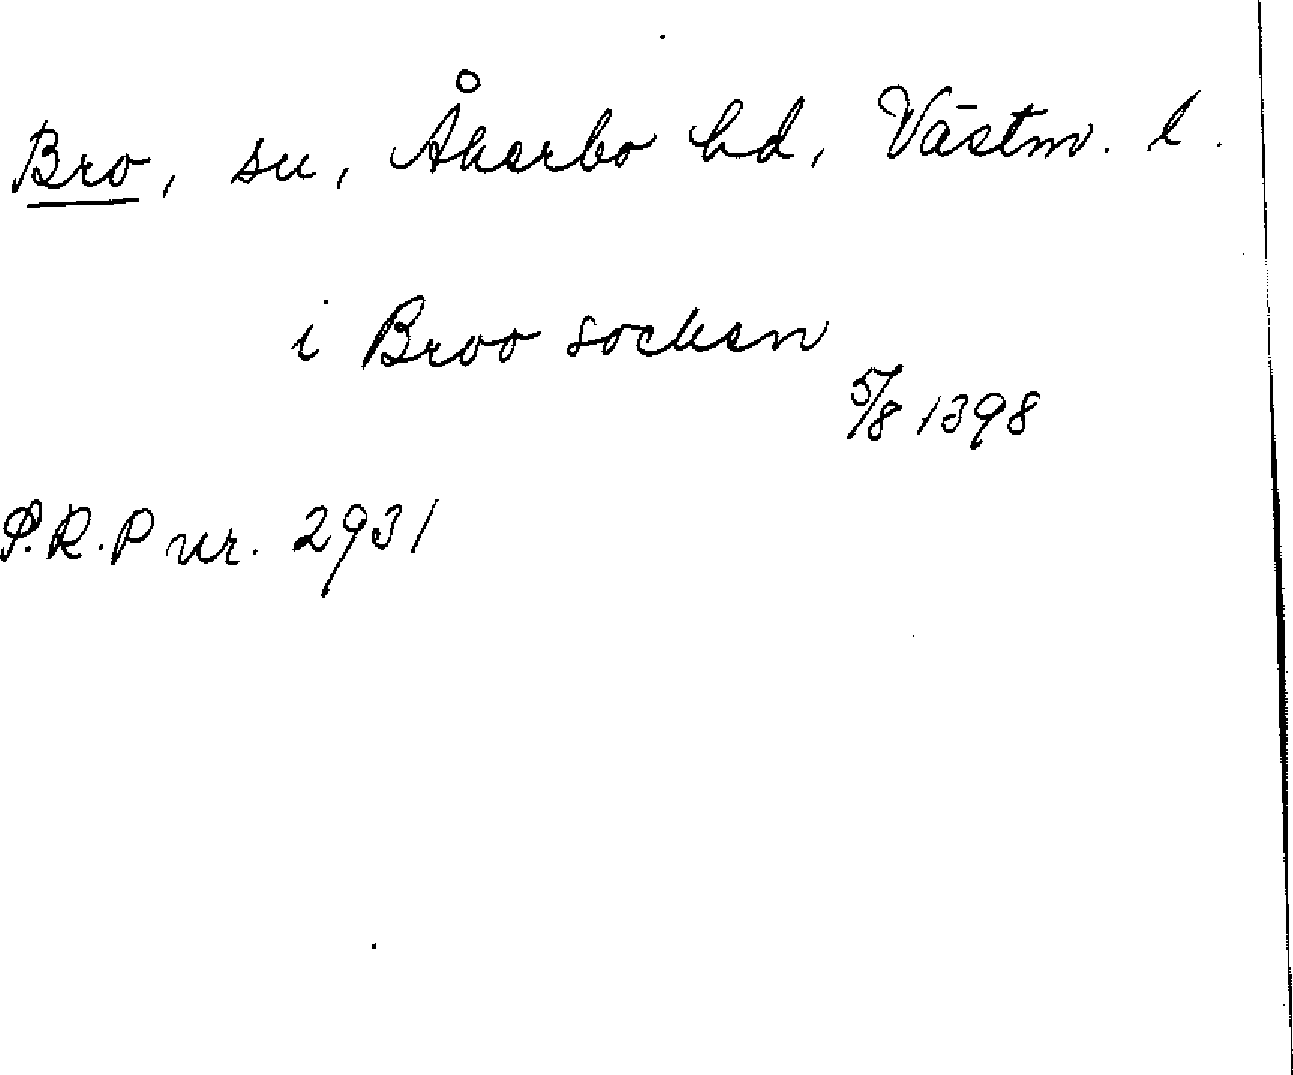 Bro, sn, Åkerbo hd, Västm. l.
i Broo socken
5/8 1398
P.R.P nr. 2931